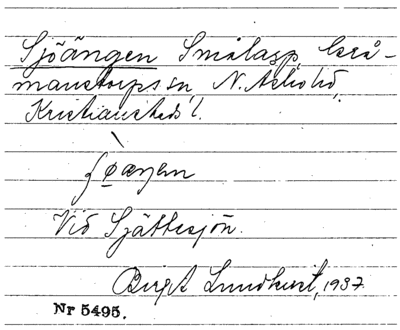 Sjöängen Smålägg, Grå-
manstorps sn, N. Åsbo hd,
Kristianstads l.
Vid Sjöttesjön.
Birgit Lundkvist, 1937.
Nr 5495.